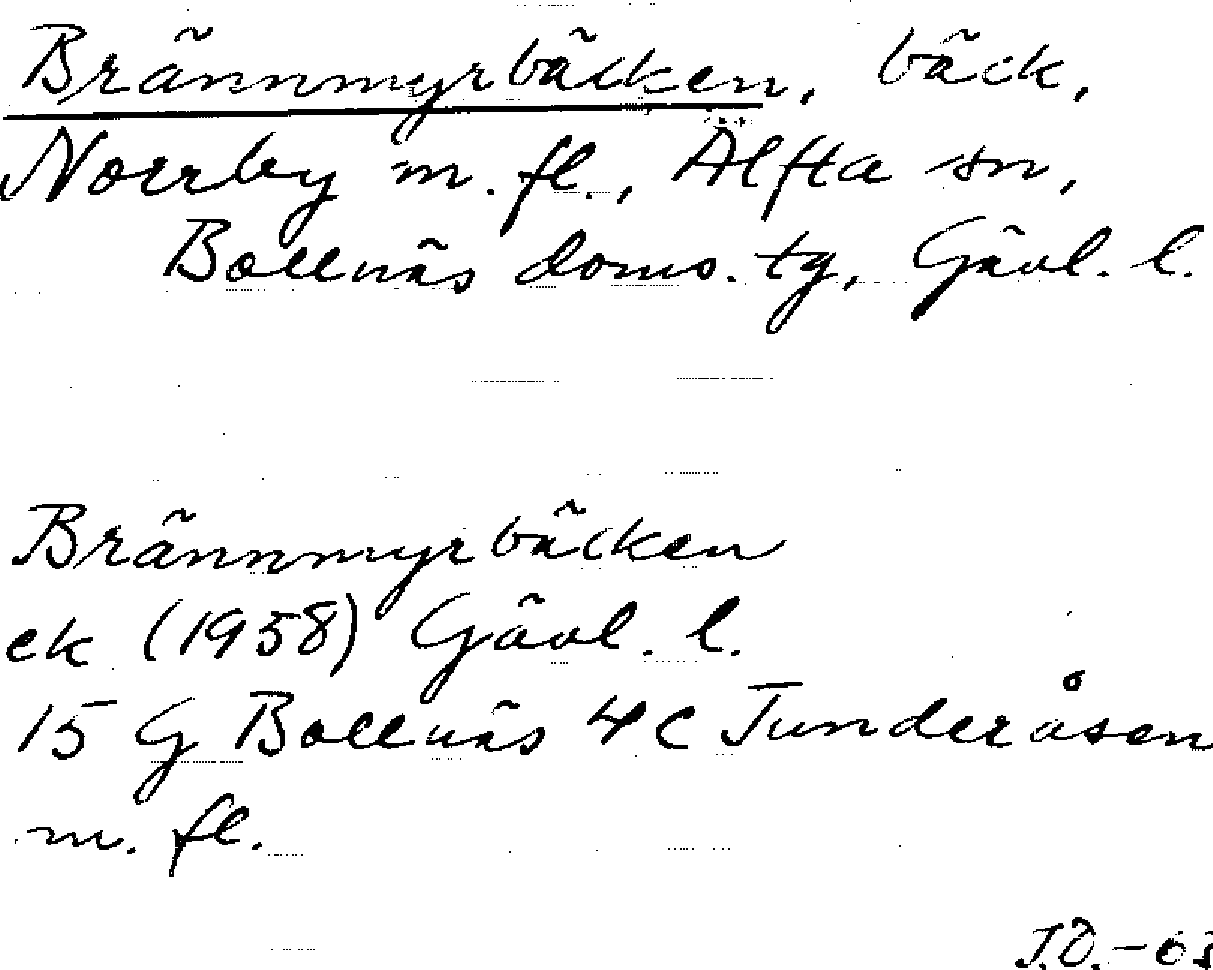 Brännmyrbäcken, bäck,
Norrby m.fl., Alfta sn,
Bollnäs doms. tg, Gävl. l.
Brännmyrbäcken
ek (1958) Gävl. l.
15 G Bollnäs 4c Tunderåsen
m. fl.